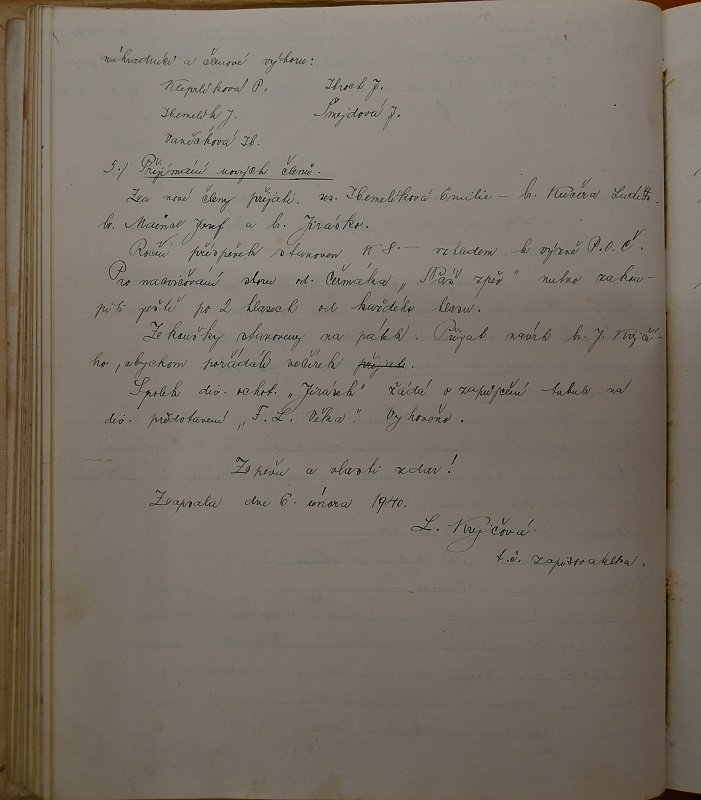 náhradníci a členové výboru:
Kleprlíková P. Hroch J.
Chmelík J. Šmejdová J.
Vaněčková
5.) Přijímání nových členů.
Za nové členy přijati: ses. Chmelíková Emilie – br. Kučera Luděk –
br. Mainel Josef a br. Jirásko.
Roční příspěvek stanoven K 8.– vzhledem k výzvě P.O.Č.
Pro nacvičování sboru od Čermáka „Náš zpěv" nutno zakou-
piti ještě po 2 hlasech od každého hlasu.
Zkoušky stanoveny na pátek. Přijat návrh br. J. Krejčí-
ho, abychom pořádali večírek přijat.
Spolek div. ochot. „Jirásek" žádá o zapůjčení tabule na
div. představení „F. L. Věka". Vyhověno.
Zpěvu a vlasti zdar!
Zapsala dne 6. února 1940.
L. Krejčová
t.č. zapisovatelka.